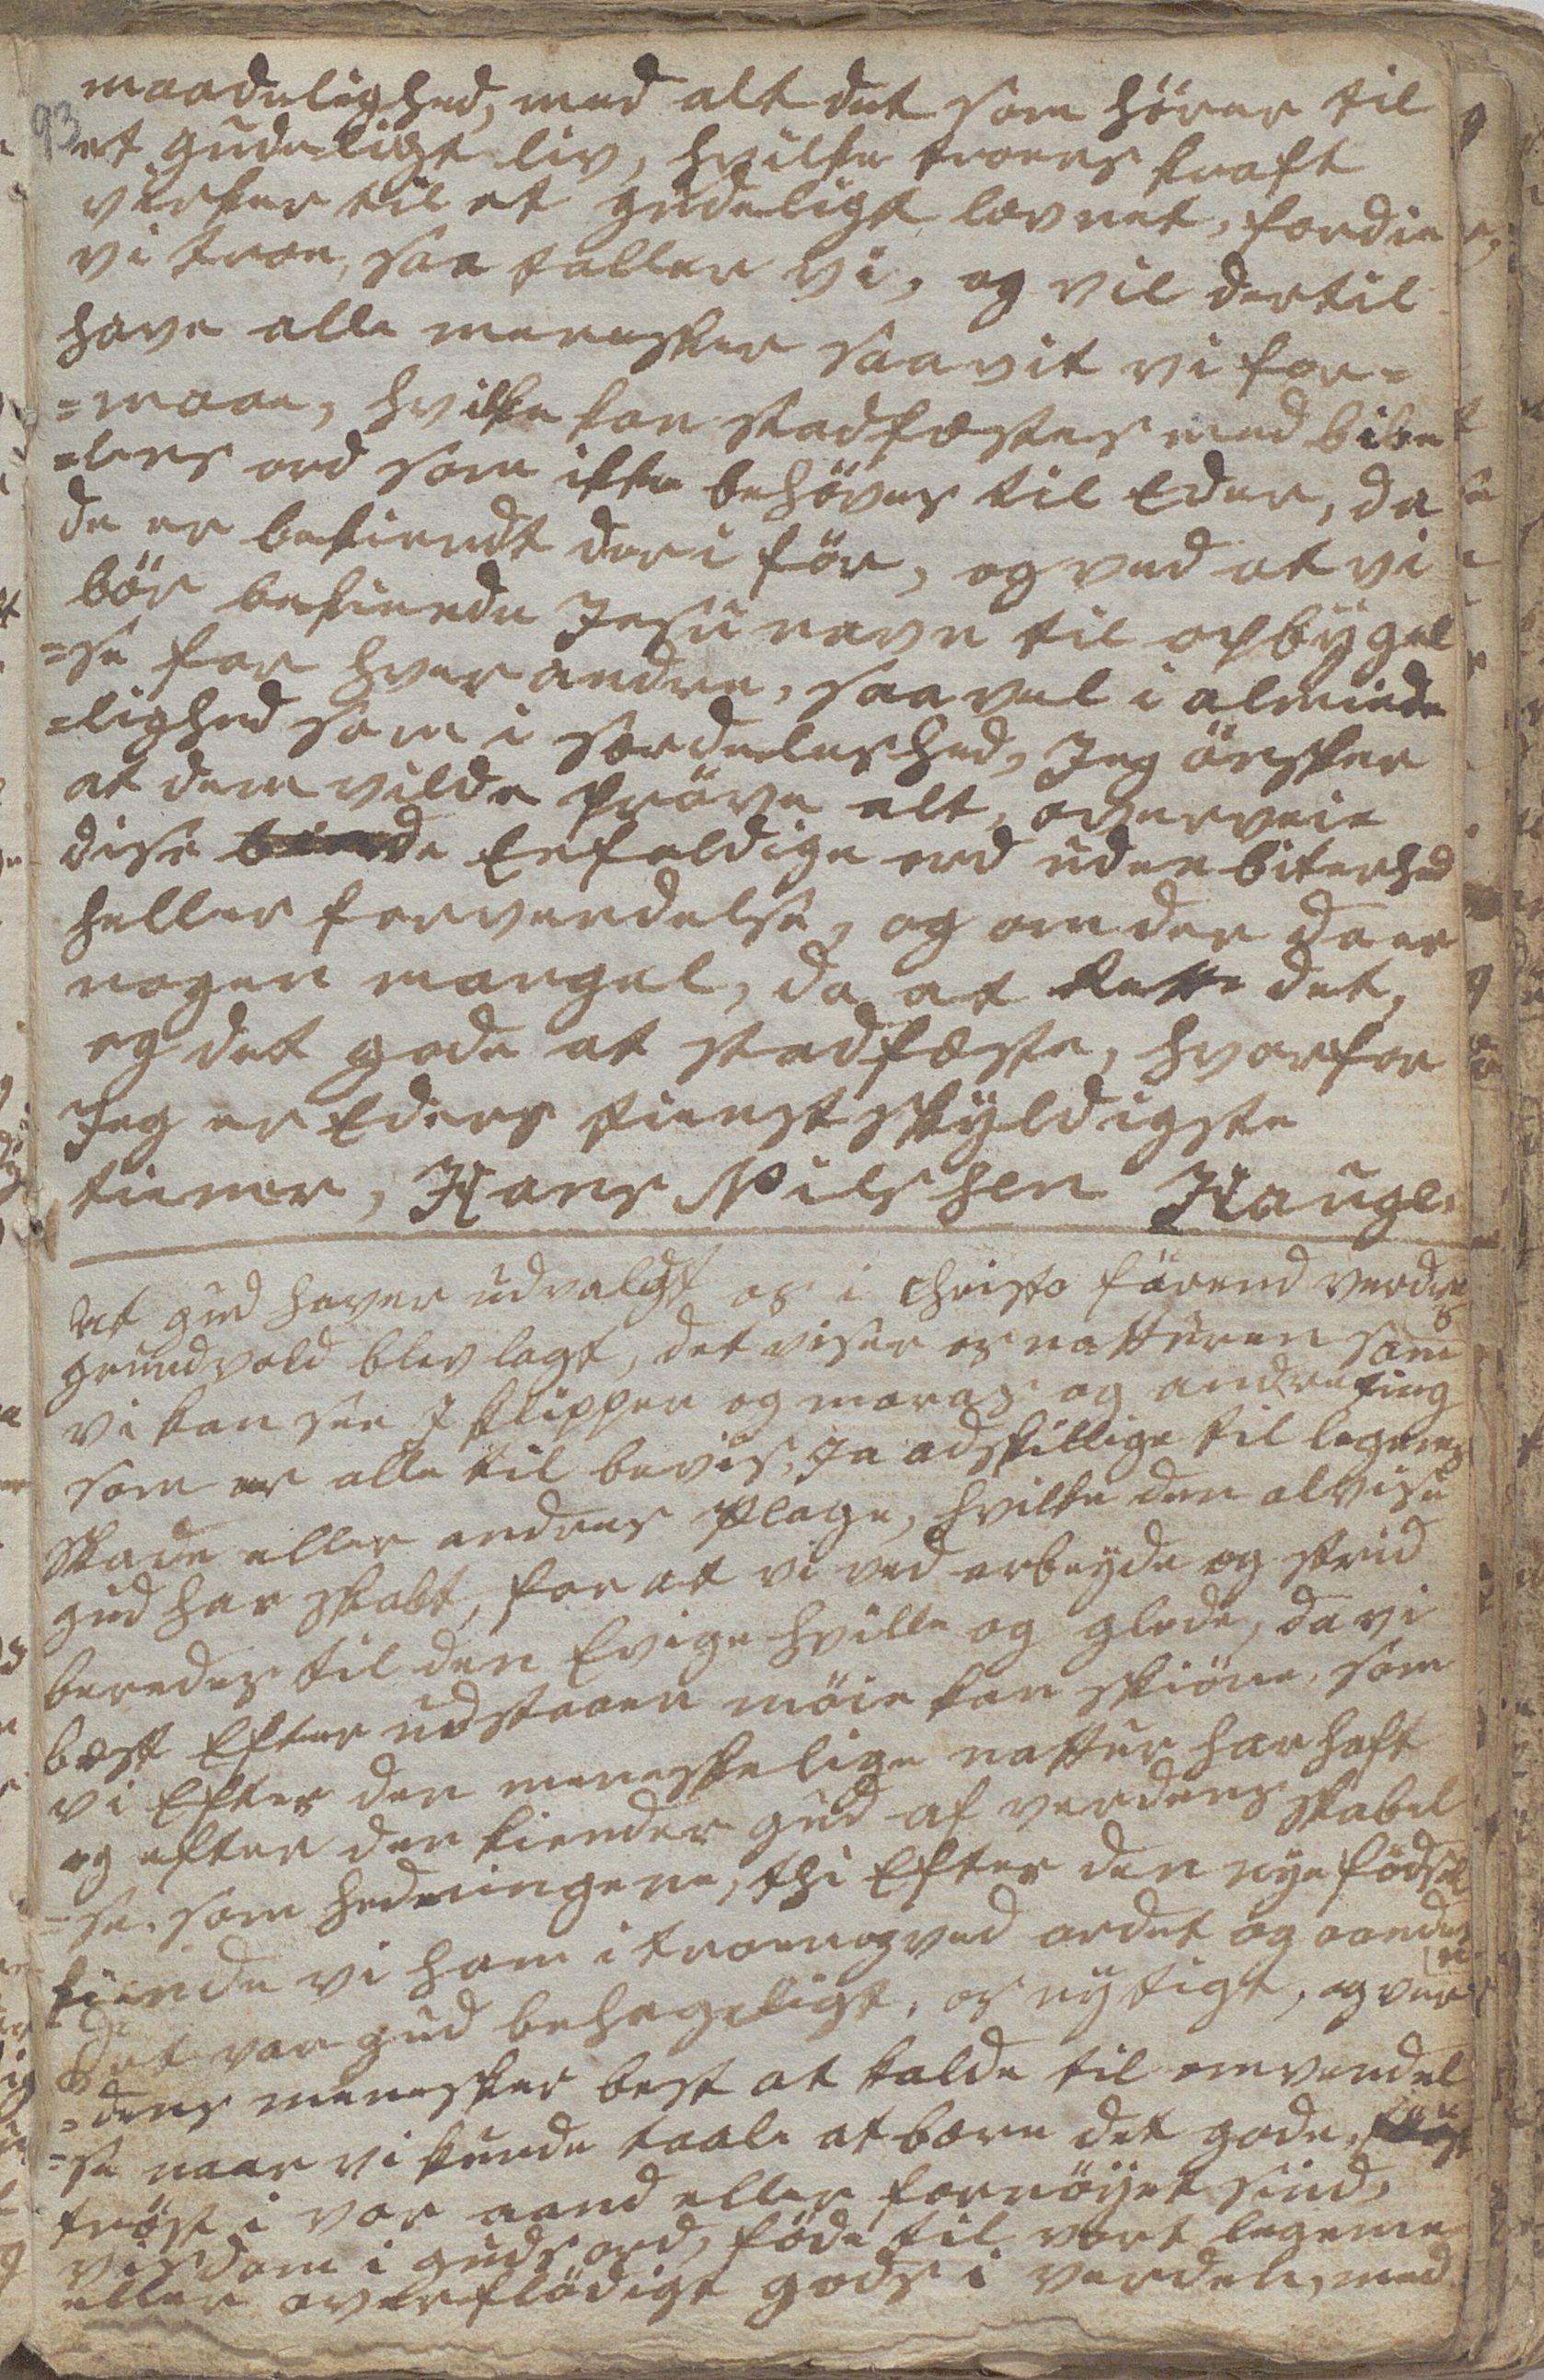 93
maadelighed, med alt det som hörer til
et gudeligt liv, hvilke troens kraft
virker til et gudeligt levnet, fordie
vi troe, saa taller vi, og vil dertil
have alle menesker saavit vi for=
=maae, hvilke kan stadfæstes med bibe
=lens ord som ikke behöves til Eder, da
de er bekiendt deri för, og ved at vi
bör bekiende Jesu navn til opbygel
=se for hverandre, saavel i alminde
=lighed som i serdeleshed, Jeg önsker
at dem vilde pröve alt, overveie
dise Enfoldige ord uden biterhed
heller forvendelse, og om der da er
nogen mangel, da at Rette det,
og det gode at stadfæste, hvorfor
Jeg er Eders tienstskyldigste
tiener, Hans Nilshen Hauge.
At gud haver udvalgt os i Christo förend verdens
grundvold blev lagt, det viser os natturen som
vi kan see I klipper og moras og andre ting
som er alle til bevis, Ja adskillige til legems
skade eller andens Plage, hvilke den alvise
gud har skabt, for at vi ved arbeyde og strid
beredes til den Evige hville og glede, da vi
best Efter udstaaen möie kan skiöne, som
vi Efter den meneskelige nattur har haft
og efter den kiender gud af verdens skabel
=se, som hedningene, thi Efter den nye födsel
kiende vi ham i troen og ved ordet og aanden
Det var gud behageligt, os nyttigt, og ver
=dens menesker best at kalde til omvendel
=se naar vi kunde taale at bære det gode,
tröst i vor aand eller fornöyet sind,
visdom i guds ord, föde til vort legeme
eller overflödigt gods i verden, med